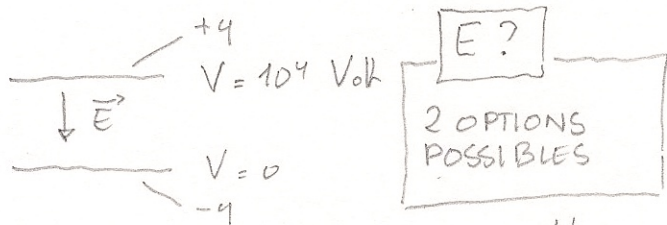 +q
V = 10⁴ Volt
E⃗
V = 0
-q
E ?
2 OPTIONS
POSSIBLES